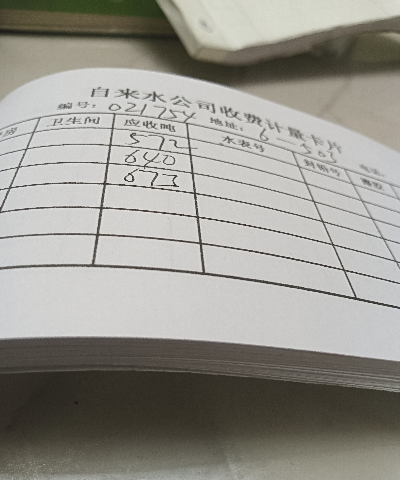 自来水公司收费计量卡片
编号: 021754 地址: 6-501 电话:
房 卫生间 应收吨 水表号 封铅号
572
640
673